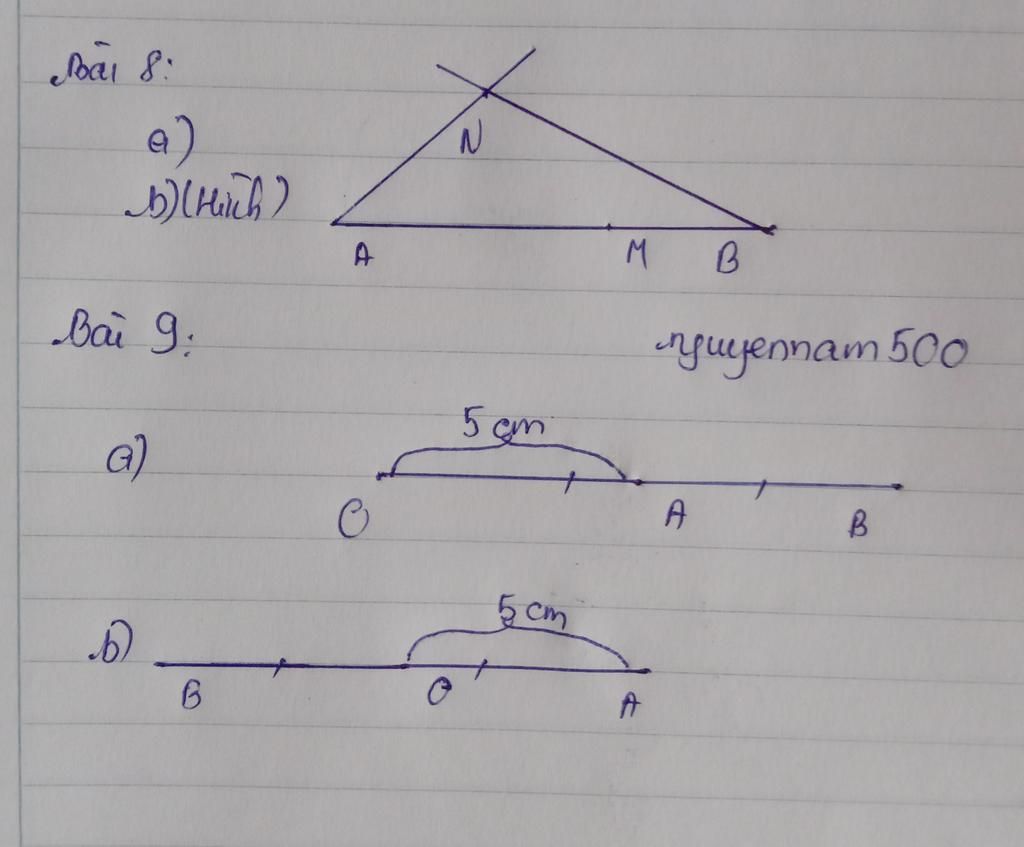 Bài 8:
N
a)
b) (Hình)
A M B
Bài 9:
nguyennam 500
5 cm
a)
O A B
5 cm
b)
B O A